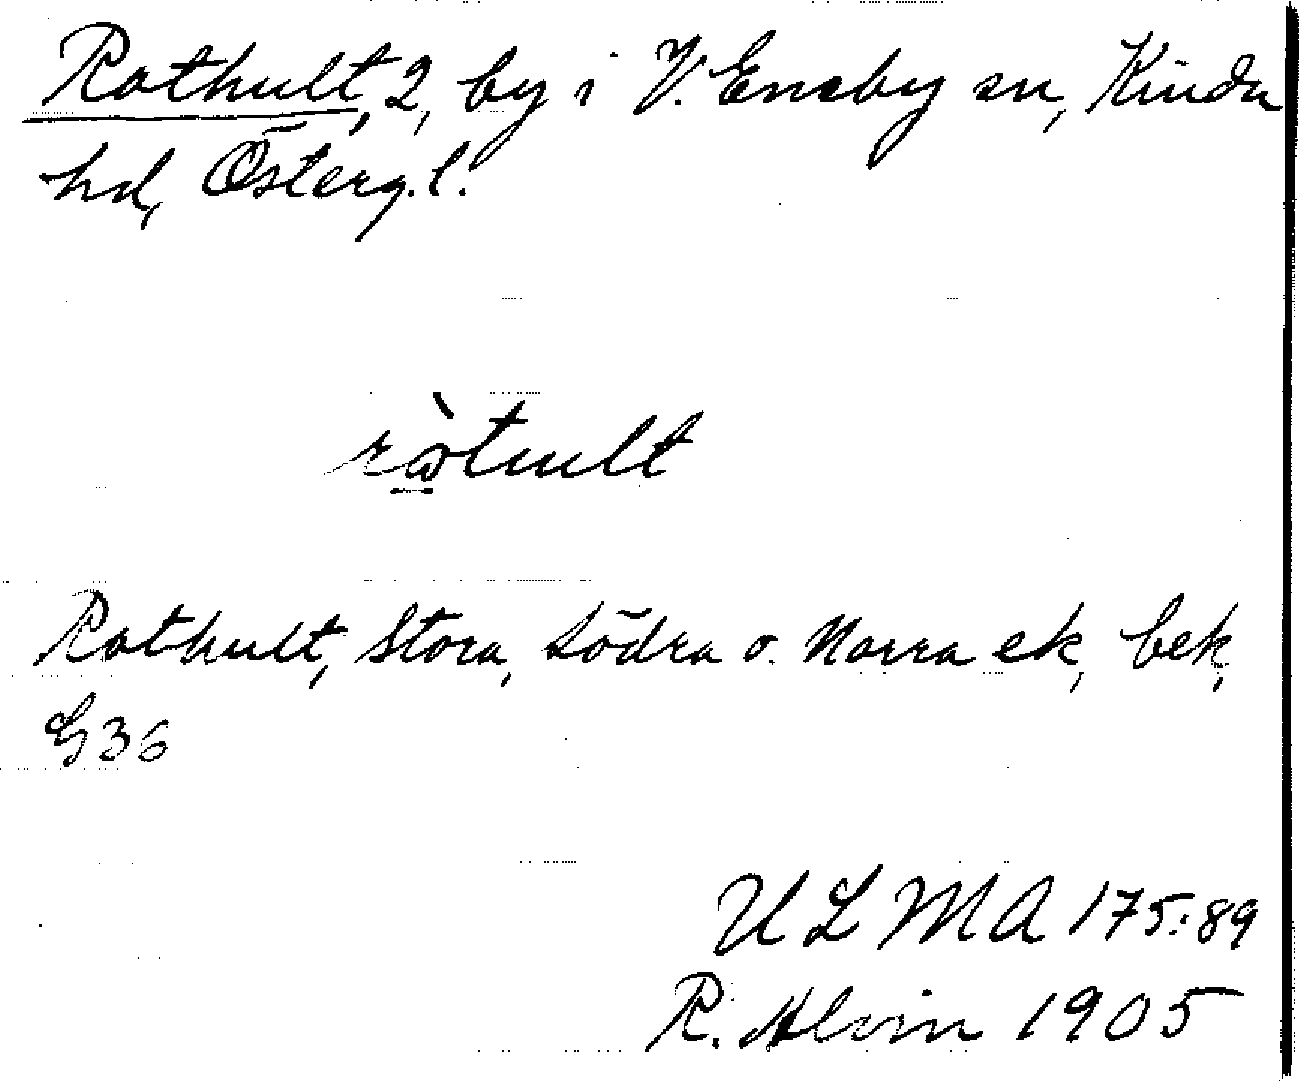 Rothult, 2, by i V. Eneby sn, Kinda
hd, Österg. l.
ròtult
Rothult, Stora, Södra o. Norra ek, bek,
G 36
ULMA 175:89
R. Alvin 1905